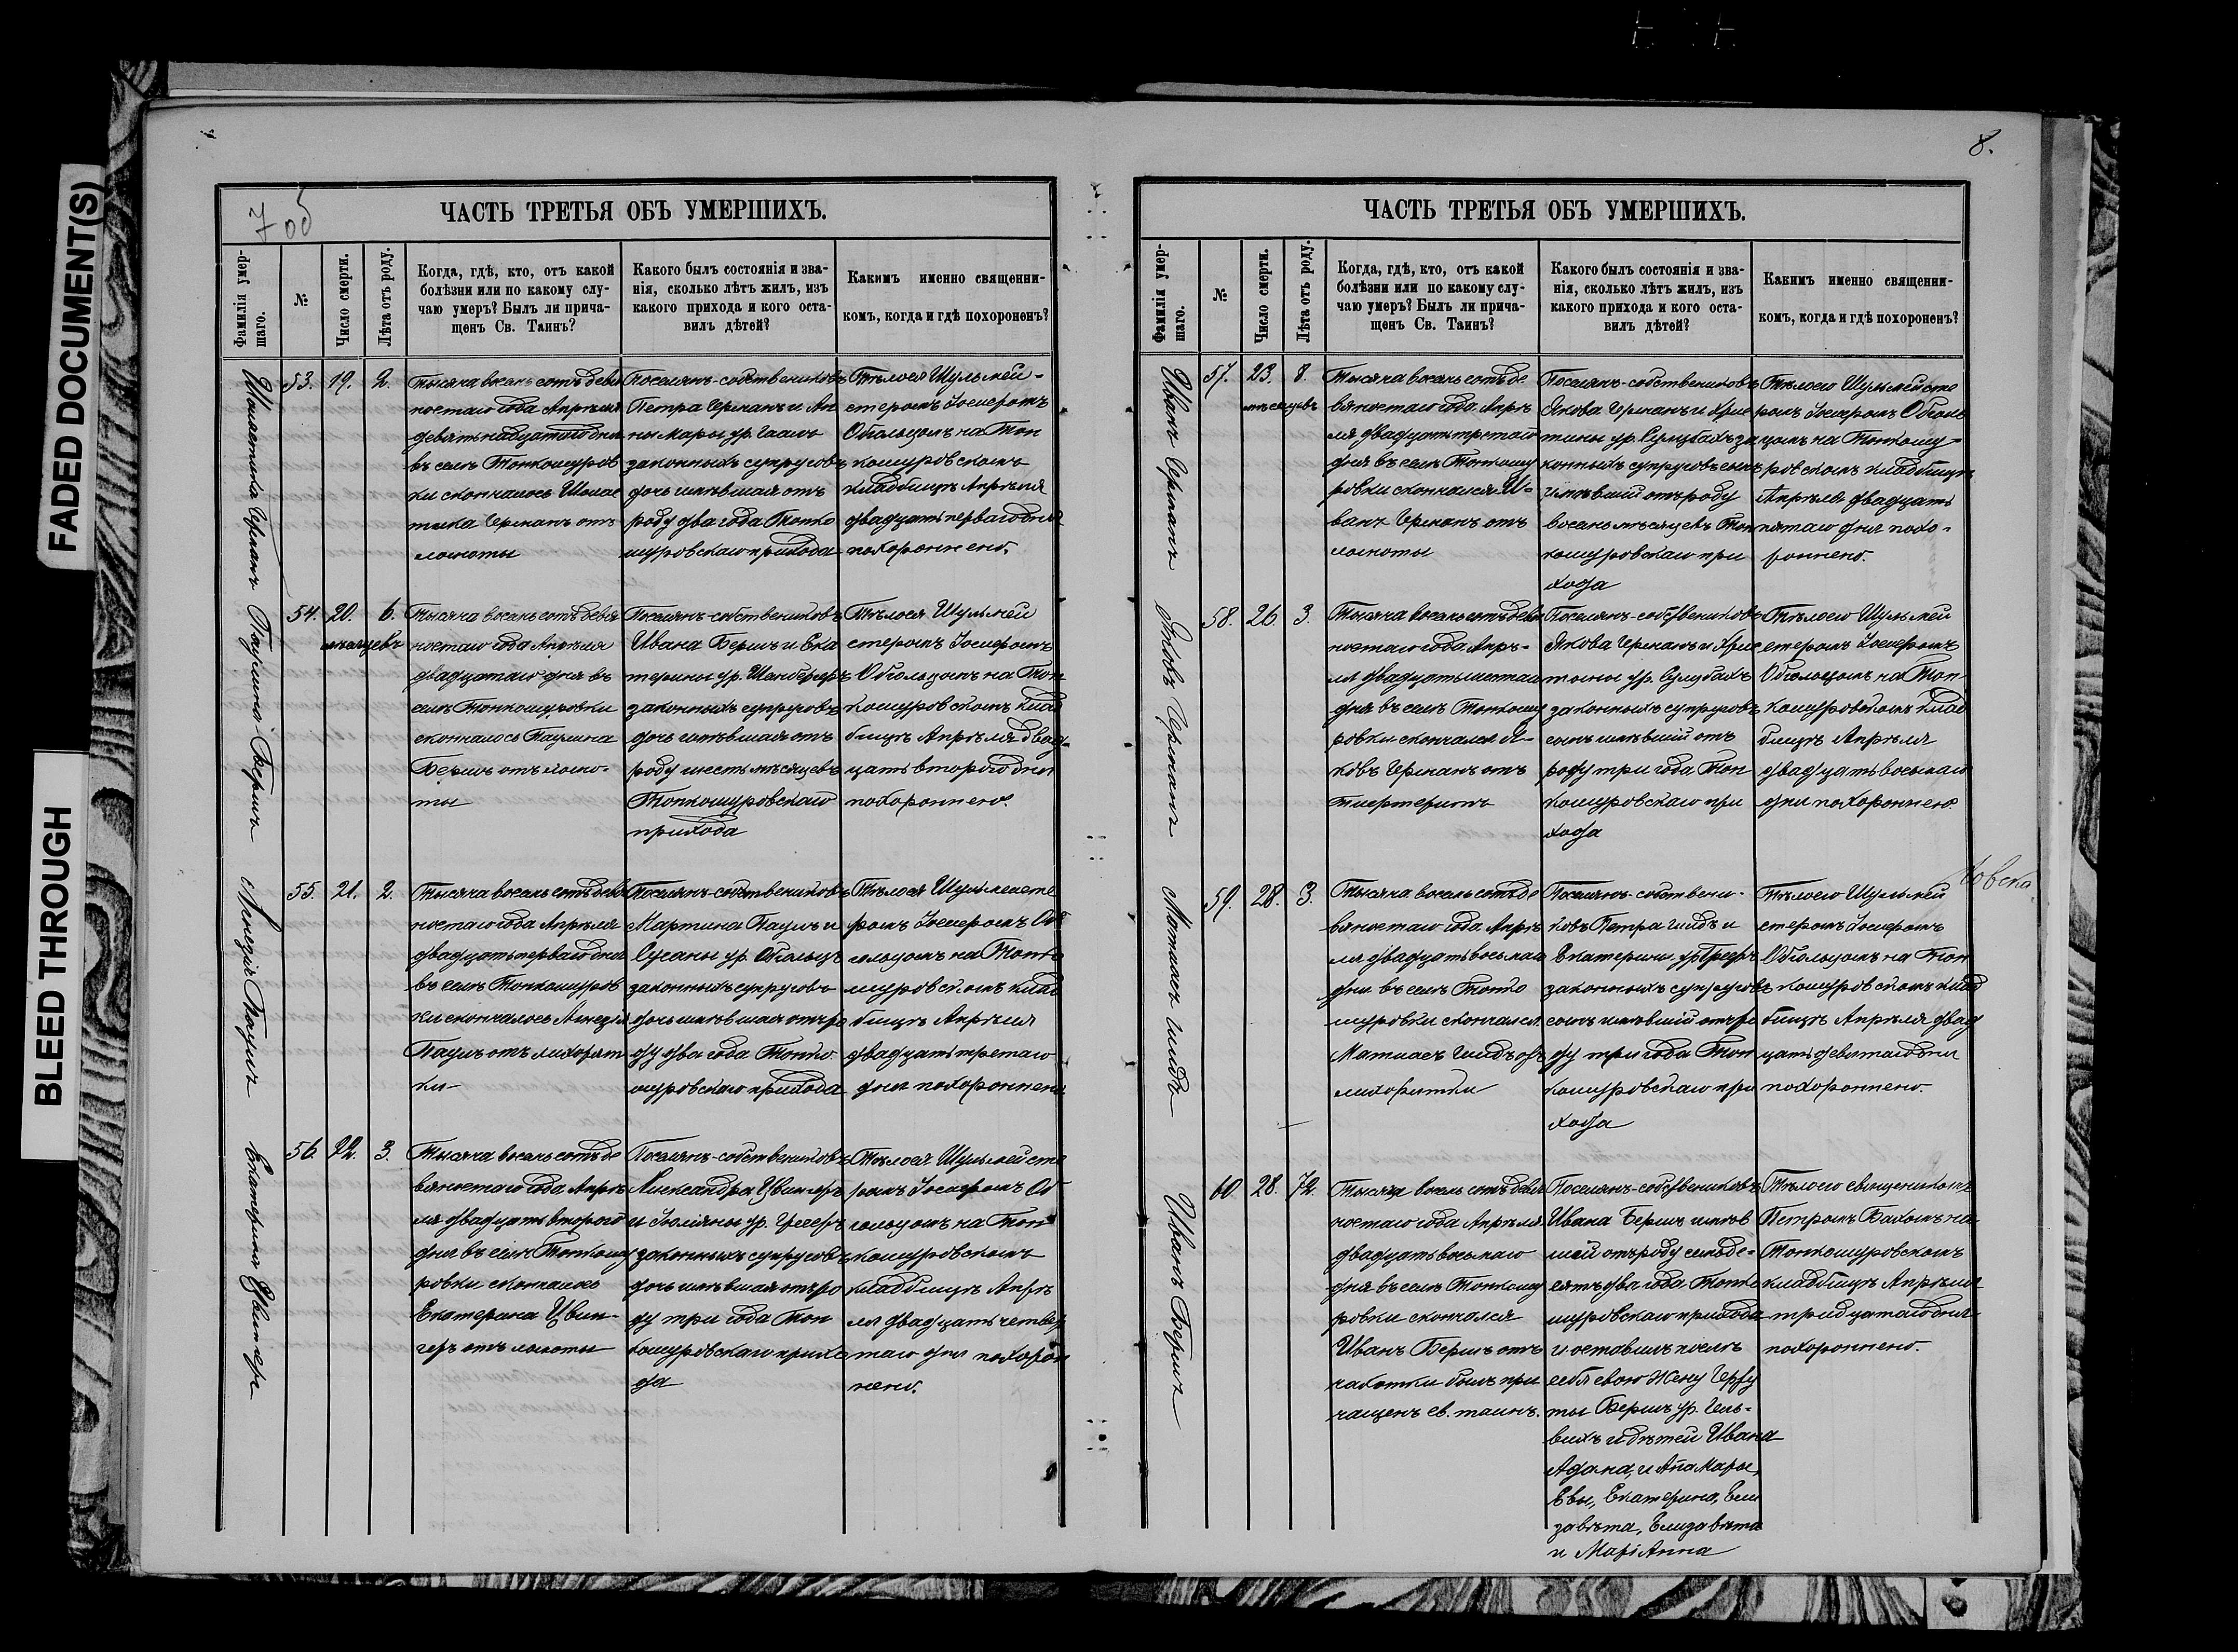 FADED DOCUMENT(S)
BLEED THROUGH
7 об
ЧАСТЬ ТРЕТЬЯ ОБЪ УМЕРШИХЪ.
Фамилія умер-
шаго.
№
Число смерти.
Лѣта отъ роду.
Когда, гдѣ, кто, отъ какой
болѣзни или по какому слу-
чаю умеръ? Былъ ли прича-
щенъ Св. Таинъ?
Какого былъ состоянія и зва-
нія, сколько лѣтъ жилъ, изъ
какого прихода и кого оста-
вилъ дѣтей?
Какимъ именно священни-
комъ, когда и гдѣ похороненъ?
Схоластика Германъ
53.
19.
2.
Тысяча восемь сотъ девя
ностаго года Апрѣля
девятьнадцатого дня
въ селѣ Тонкошуров
ки скончалось Шолас
тика Германъ отъ
ломоты
Поселянъ-собствениковъ
Петра Германъ и Ан
ны Мары ур. Гаагъ
законныхъ супруговъ
дочь имѣвшая отъ
роду два года Тонко
шуровскаго прихода
Тѣлося Шульмей-
стеромъ Іосифомъ
Обгольцомъ на Тон
кошуровскомъ
кладбищѣ Апрѣля
двадцать перваго дня
похороннено.
Паулина Бершъ
54.
20.
6.
мѣсяцевъ
Тысяча восемь сотъ девя
ностаго года Апрѣля
двадцатаго дня въ
селѣ Тонкошуровки
скончалось Паулина
Бершъ отъ ломо-
ты
Поселянъ-собствениковъ
Ивана Бершъ и Ека
терины ур. Шенбергеръ
законныхъ супруговъ
дочь имѣвшая отъ
роду шесть мѣсяцевъ
Тонкошуровскаго
прихода
Тѣлося Шульмей
стеромъ Іосифомъ
Обгольцомъ на Тон
кошуровскомъ клад
бищѣ Апрѣля двад-
цать второго дня
похороннено.
Агнезія Пауль
55.
21.
2.
Тысяча восемь сотъ девя
ностаго года Апрѣля
двадцать перваго дня
въ селѣ Тонкошуров
ки скончалось Агнезія
Пауль отъ лихорат
ки-
Поселянъ-собствениковъ
Мартина Пауль и
Сусаны ур. Обгольцъ
законныхъ супруговъ
дочь имѣвшая отъ ро
ду два года Тонко
шуровскаго прихода
Тѣлося Шульмейсте
ромъ Іосифомъ Об
гольцомъ на Тонко
шуровскомъ клад
бищѣ Апрѣля
двадцать третаго
дня похороннено
Екатерина Цвингеръ
56.
22.
3.
Тысяча восемь сотъ де
вяностаго года Апрѣ
ля двадцать второго
дня въ селѣ Тонкошу
ровки скончалось
Екатерина Цвин-
геръ отъ ломоты
Поселянъ-собствениковъ
Александра Цвингеръ
и Іюліяны ур. Гегеръ
законныхъ супруговъ
дочь имѣвшая отъ ро
ду три года Тон
кошуровскаго прихо
да
Тѣлося Шульмейсте
ромъ Іосифомъ Об
гольцомъ на Тон
кошуровскомъ
кладбищѣ Апрѣ
ля двадцать четвер
таго дня похорон
нено.
8.
ЧАСТЬ ТРЕТЬЯ ОБЪ УМЕРШИХЪ.
Фамилія умер-
шаго.
№
Число смерти.
Лѣта отъ роду.
Когда, гдѣ, кто, отъ какой
болѣзни или по какому слу-
чаю умеръ? Былъ ли прича-
щенъ Св. Таинъ?
Какого былъ состоянія и зва-
нія, сколько лѣтъ жилъ, изъ
какого прихода и кого оста-
вилъ дѣтей?
Какимъ именно священни-
комъ, когда и гдѣ похороненъ?
Иванъ Германъ
57.
23.
8.
мѣсяцевъ
Тысяча восемь сотъ де
вяностаго года Апрѣ
ля двадцать третаго
дня въ селѣ Тонкошу
ровки скончался И-
ванъ Германъ отъ
ломоты
Поселянъ-собствениковъ
Якова Германъ и Хрис
тины ур. Сулцбахъ за
конныхъ супруговъ сынъ
имѣвшій отъ роду
восемь мѣсяцевъ Тон
кошуровскаго при
хода
Тѣлосо Шульмейсте
ромъ Іосифомъ Обголь
цомъ на Тонкошу-
ровскомъ кладбищѣ
Апрѣля двадцать
пятаго дня похо-
ронено.
Яковъ Германъ
58.
26.
3.
Тысяча восемь сотъ девя
ностаго года Апрѣ-
ля двадцать шестаго
дня въ селѣ Тонкошу
ровки скончался Я-
ковъ Германъ отъ
Поселянъ-собствениковъ
Якова Германъ и Хрис
тины ур. Сулцбахъ
законныхъ супруговъ
сынъ имѣвшій отъ
роду три года Тон
кошуровскаго при
хода
Тѣлосо Шульмей
стеромъ Іосифомъ
Обгольцомъ на Тон-
кошуровскомъ клад
бищѣ Апрѣля
двадцать восьмаго
дня похороннено.
Матиасъ Шидъ
59.
28.
3.
Тысяча восемь сотъ де
вяностаго года Апрѣ
ля двадцать восьмаго
дня въ селѣ Тонко
шуровки скончался
Матиасъ Шидъ отъ
лихоратки
Поселянъ-собствени-
ковъ Петра Шидъ и
Екатерины ур.
законныхъ супруговъ
сынъ имѣвшій отъ ро
ду три года Тон
кошуровскаго при
хода
Тѣлосо Шульмей
стеромъ Іосифомъ
Обгольцомъ на Тон
кошуровскомъ клад
бищѣ Апрѣля двад
цать девятаго дня
похороннено.
Иванъ Бершъ
60.
28.
72.
Тысяча восемь сотъ девя
ностаго года Апрѣля
двадцать восьмаго
дня въ селѣ Тонкошу
ровки скончался
Иванъ Бершъ отъ
чахотки былъ при
чащенъ св. таинъ.
Поселянъ-собствениковъ
Ивана Бершъ имѣв
шій отъ роду семьде-
сятъ два года Тонко
шуровскаго прихода
и оставилъ послѣ
себя свою жену Герту
ты Бершъ ур. Гель-
вихъ и дѣтей Ивана
Адама, и Ана Мары,
Евы, Екатерина, Ели
завѣта, Елизавѣта
и МаріАнна
Тѣлосо священикомъ
Петромъ Бахомъ на
Тонкошуровскомъ
кладбищѣ Апрѣля
тридцатаго дня
похороннено.